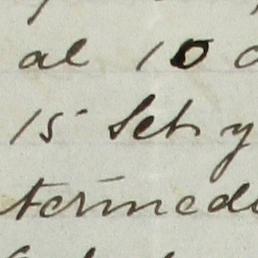 al 10
15 Set y
termedi